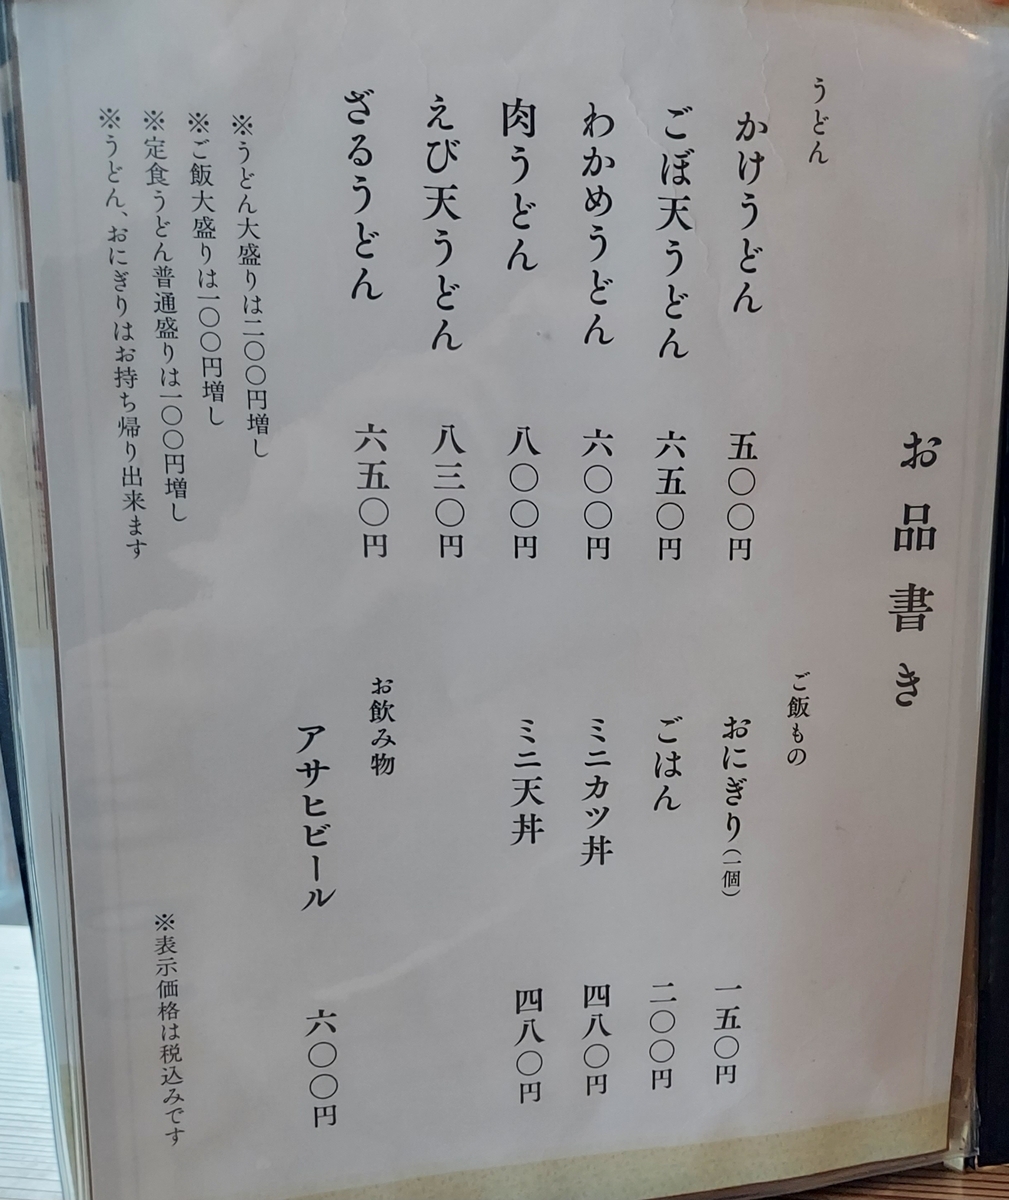 お品書き
うどん
かけうどん 五〇〇円
ごぼ天うどん 六五〇円
わかめうどん 六〇〇円
肉うどん 八〇〇円
えび天うどん 八三〇円
ざるうどん 六五〇円
※うどん大盛りは二〇〇円増し
※ご飯大盛りは一〇〇円増し
※定食うどん普通盛りは一〇〇円増し
※うどん、おにぎりはお持ち帰り出来ます
ご飯もの
おにぎり(一個) 一五〇円
ごはん 二〇〇円
ミニカツ丼 四八〇円
ミニ天丼 四八〇円
お飲み物
アサヒビール 六〇〇円
※表示価格は税込みです